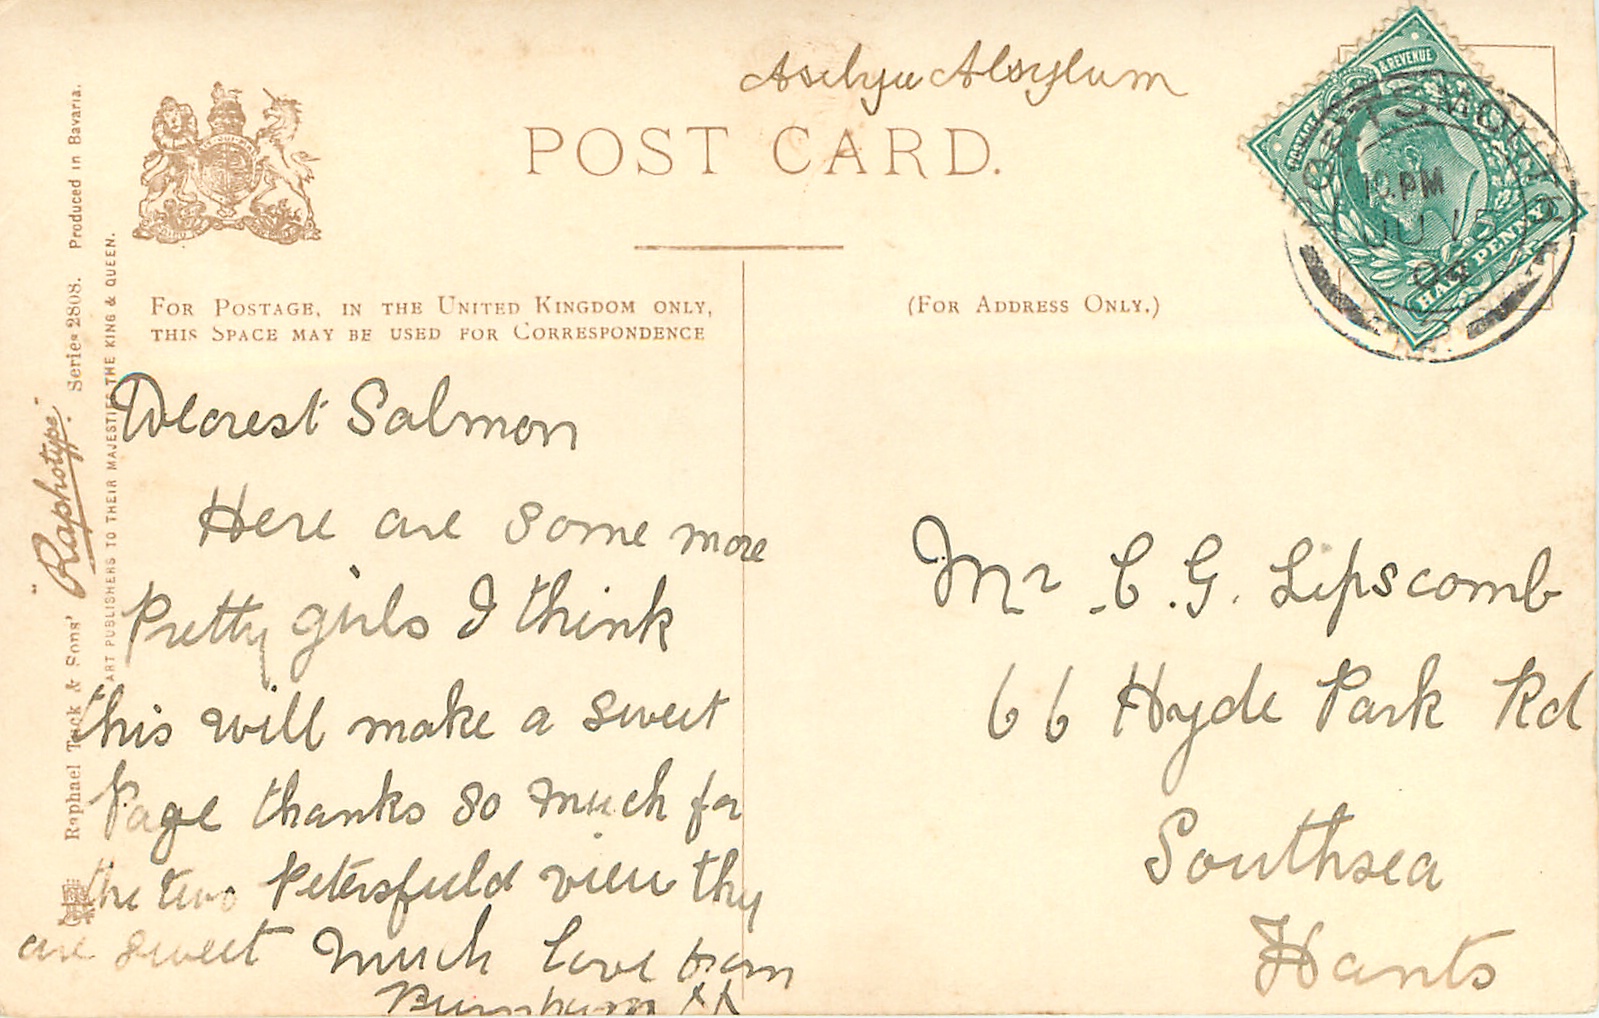 POST CARD.
FOR POSTAGE, IN THE UNITED KINGDOM ONLY,
THIS SPACE MAY BE USED FOR CORRESPONDENCE
(FOR ADDRESS ONLY.)
POSTAGE & REVENUE
HALF PENNY
PORTSMOUTH
10.PM
JU 15
Raphael Tuck & Sons' "Raphotype." Series 2808. Produced in Bavaria.
ART PUBLISHERS TO THEIR MAJESTIES THE KING & QUEEN.
Dearest Salmon
Here are some more
Pretty girls I think
this will make a sweet
Page thanks so much for
the two Petersfield view thy
are sweet much love from
XX
Mr C. G. Lipscomb
66 Hyde Park Rd
Southsea
Hants